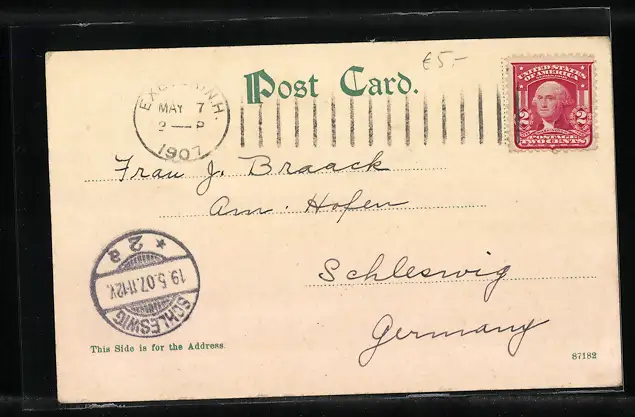 €5.-
Post Card.
EXETER, N.H.
MAY 7
2 — P
1907
UNITED STATES
OF AMERICA
2 2
POSTAGE
TWO CENTS
Frau J. Braack
Am. Hofen
Schleswig
Germany
* 2 a
19.5.07.11-12V.
SCHLESWIG
This Side is for the Address.
87182